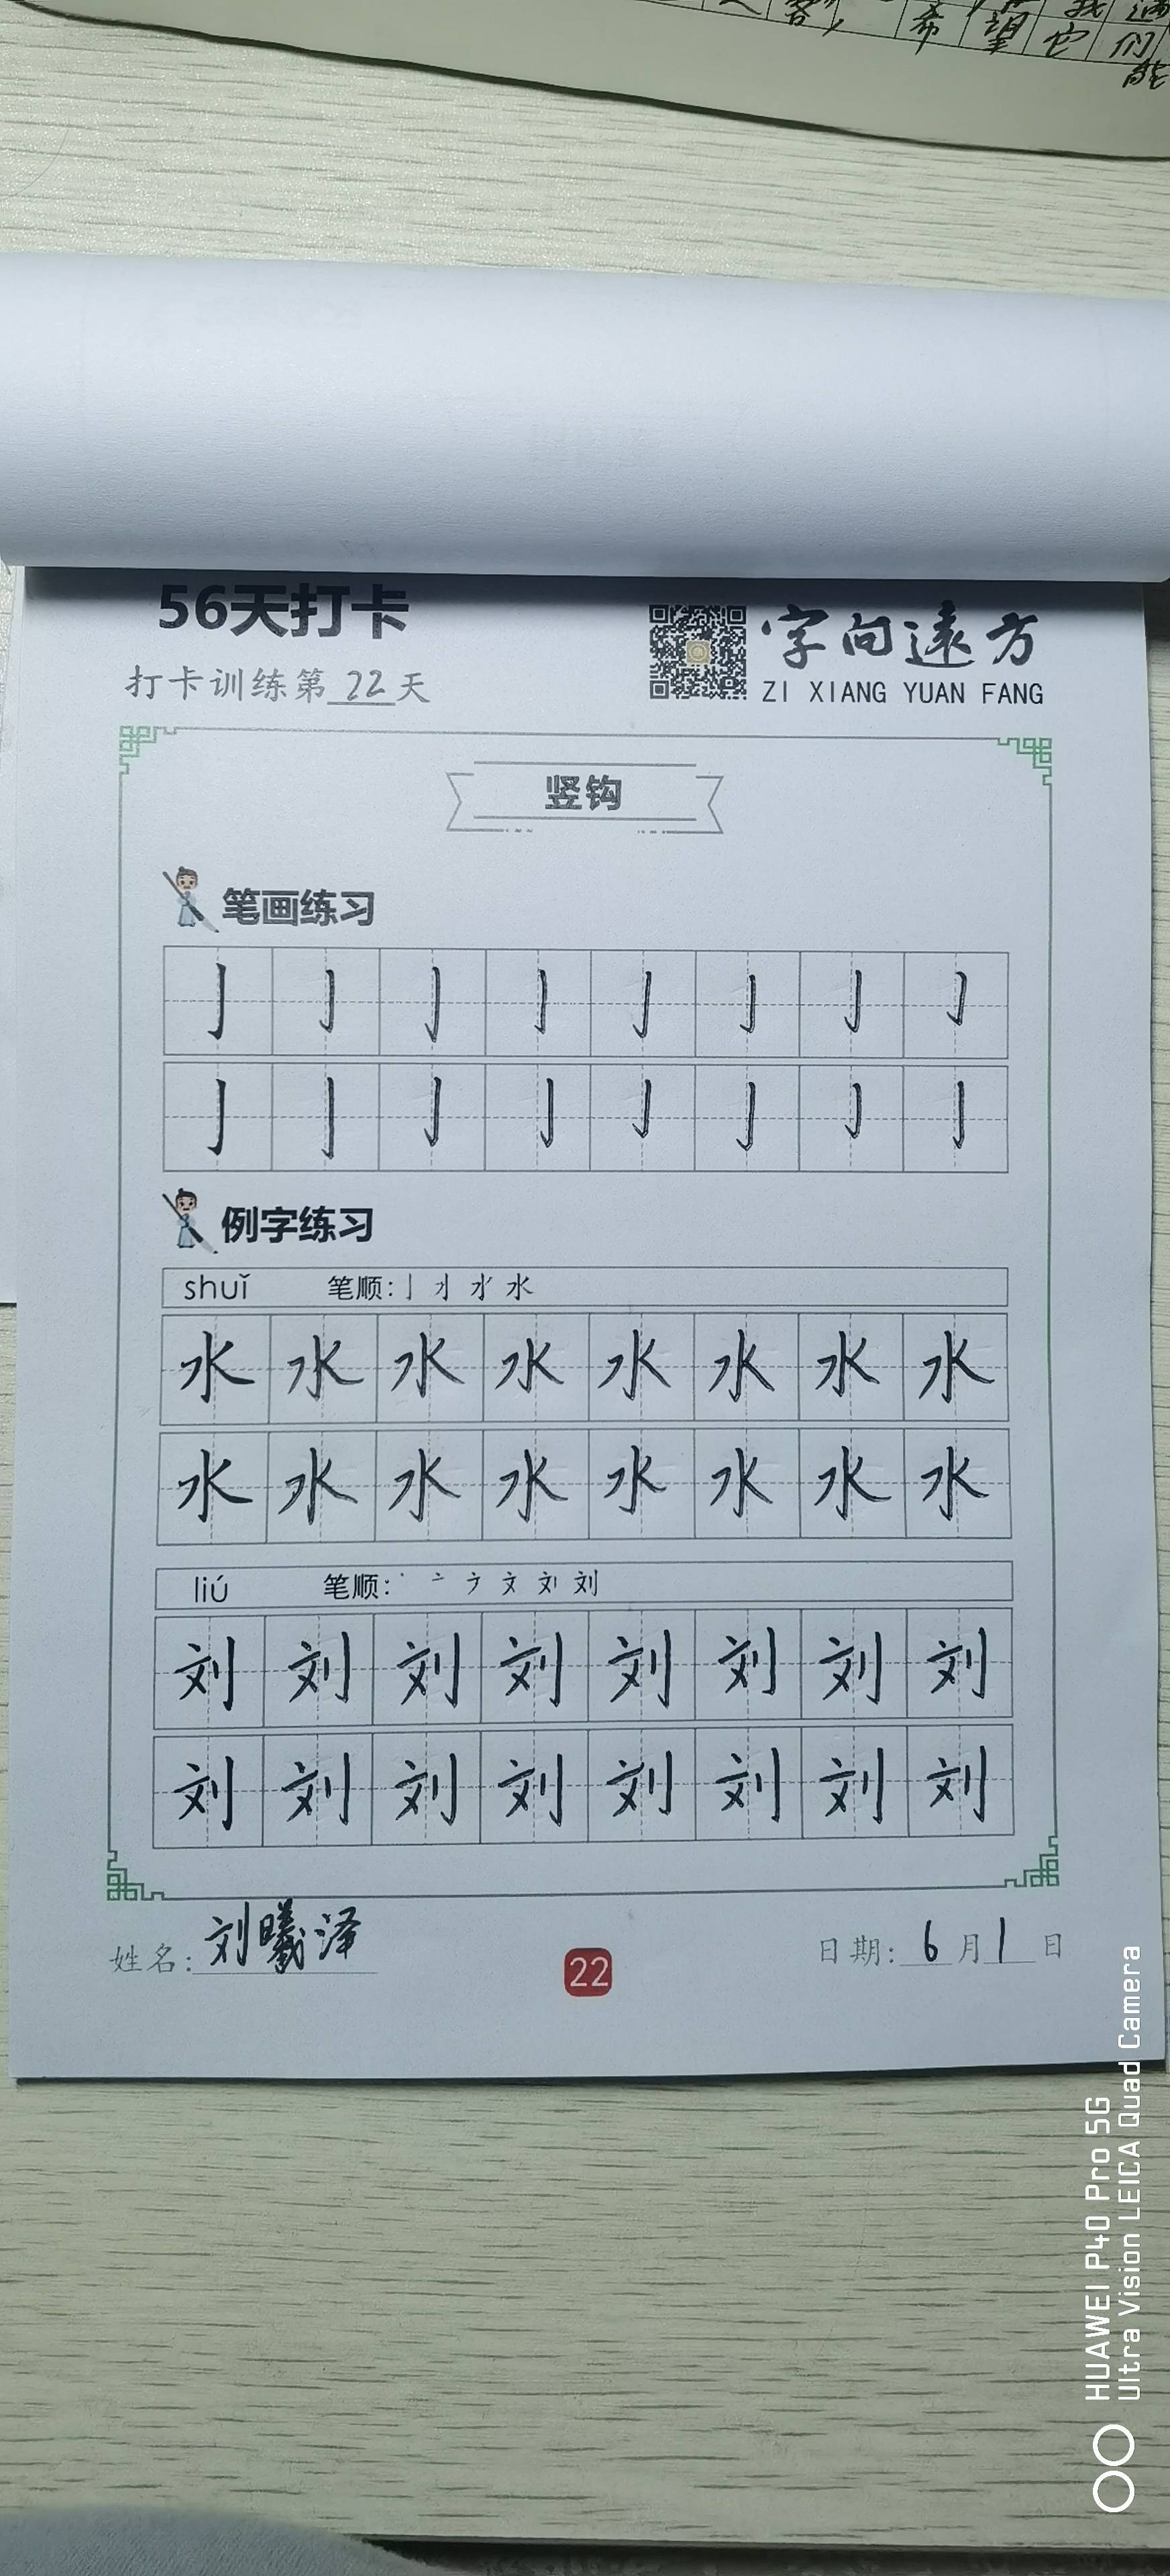 客， 希 望 它 们
能
56天打卡
打卡训练第22天
字向遠方
ZI XIANG YUAN FANG
竖钩
笔画练习
亅 亅 亅 亅 亅 亅 亅 亅
亅 亅 亅 亅 亅 亅 亅 亅
例字练习
shuǐ 笔顺: 亅 水
水 水 水 水 水 水 水 水
水 水 水 水 水 水 水 水
liú 笔顺: 丶 亠 文 刘
刘 刘 刘 刘 刘 刘 刘 刘
刘 刘 刘 刘 刘 刘 刘 刘
姓名: 刘曦泽
22
日期: 6月1日
HUAWEI P40 Pro 5G
Ultra Vision LEICA Quad Camera